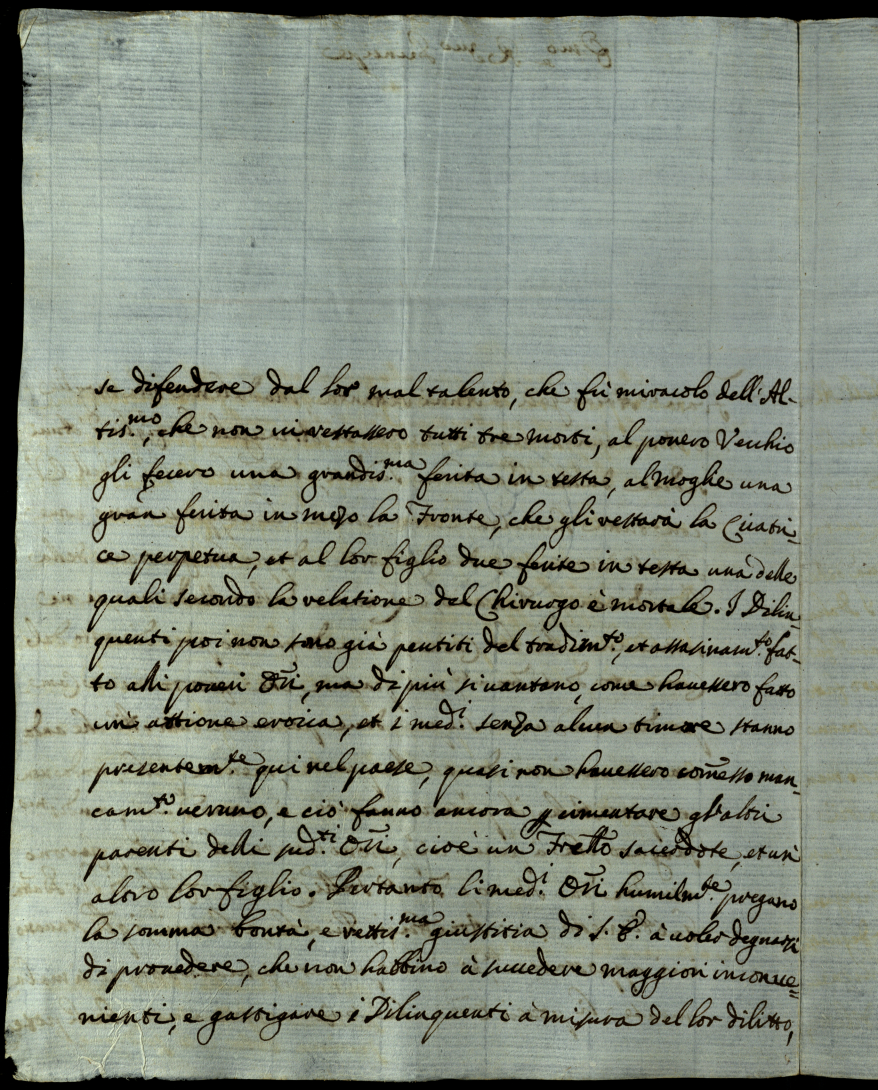 se difendere dal lor mal talento, che fù miracolo dell'Al-
tis.mo, che non vi restassero tutti tre morti, al povero Vecchio
gli fecero una grandis.ma ferita in testa, al moglie una
gran ferita in mezo la Fronte, che gli restarà la Cicatri-
ce perpetua, et al lor figlio due ferite in testa una delle
quali secondo la relatione del Chirurgo è mortale. I Dilin-
quenti poi non sono già pentiti del tradim.to, et assasinam.to fat-
to alli poveri Ori, ma di più si vantano, come havessero fatto
un'attione eroica, et i med.i senza alcun timore stanno
presentem.te qui nel paese, quasi non havessero comesso man-
cam.to veruno, e ciò fanno ancora p cimentare gl'altri
parenti delli sud.ti Ori, cioè un Frello sacerdote, et un
altro lor figlio. Pertanto li med.i Ori humilm.te pregano
la somma bontà, e rettis.ma giustitia di S. E. à voler degnarsi
di provedere, che non habbino à succedere maggiori inconve=
nienti, e gastigare i Dilinquenti à misura del lor dilitto,